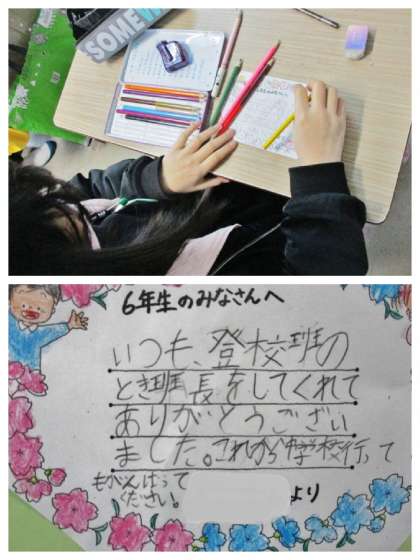 SOME
6年生のみなさんへ
いつも、登校班の
とき班長をしてくれて
ありがとうござい
ました。これから中学校行って
もがんばって
ください。
より